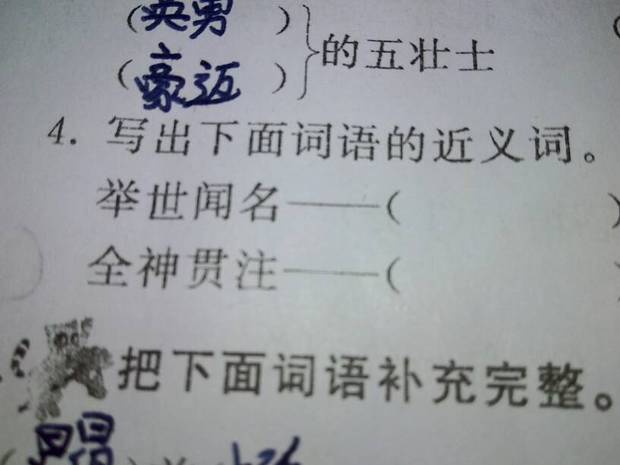 (英勇)
(豪迈)
的五壮士
4. 写出下面词语的近义词。
举世闻名——( )
全神贯注——(
把下面词语补充完整。